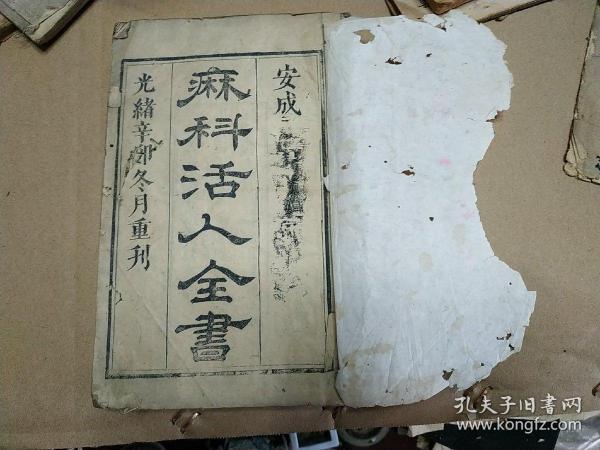 安成
麻科活人全書
光緒辛卯冬月重刊
孔夫子旧書网
www.kongfz.com